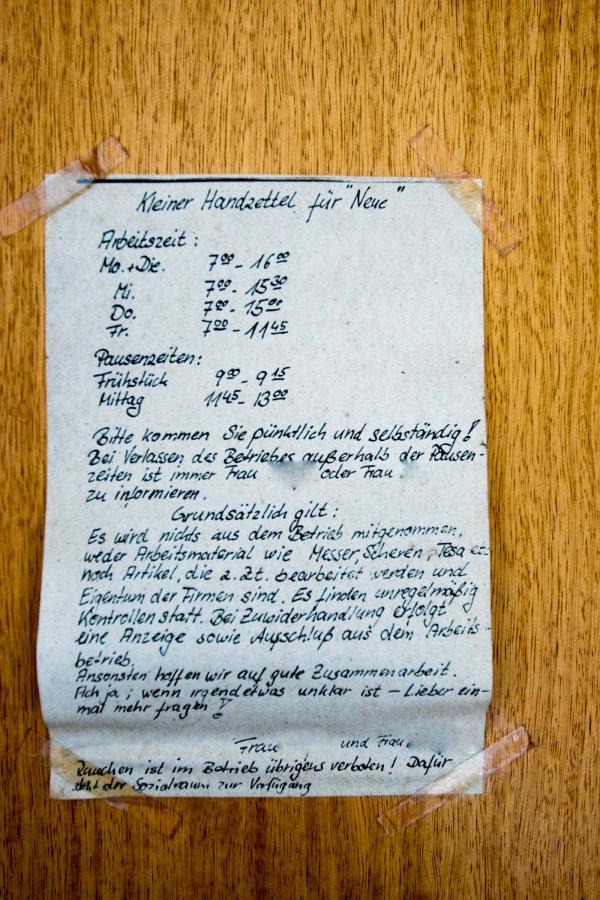 Kleiner Handzettel für "Neue"
Arbeitszeit:
Mo.+Die. 7⁰⁰ - 16⁰⁰
Mi. 7⁰⁰ - 15³⁰
Do. 7⁰⁰ - 15⁰⁰
Fr. 7⁰⁰ - 11⁴⁵
Pausenzeiten:
Frühstück 9⁰⁰ - 9¹⁵
Mittag 11⁴⁵ - 13⁰⁰
Bitte kommen Sie pünktlich und selbständig!
Bei Verlassen des Betriebes außerhalb der Pausen-
zeiten ist immer Frau oder Frau
zu informieren.
Grundsätzlich gilt:
Es wird nichts aus dem Betrieb mitgenommen,
weder Arbeitsmaterial wie Messer, Scheren, Tesa etc.
noch Artikel, die z.Zt. bearbeitet werden und
Eigentum der Firmen sind. Es finden unregelmäßig
Kontrollen statt. Bei Zuwiderhandlung erfolgt
eine Anzeige sowie Ausschluß aus dem Arbeits-
betrieb.
Ansonsten hoffen wir auf gute Zusammenarbeit.
Ach ja; wenn irgendetwas unklar ist - Lieber ein-
mal mehr fragen!
Frau und Frau
Rauchen ist im Betrieb übrigens verboten! Dafür
steht der Sozialraum zur Verfügung